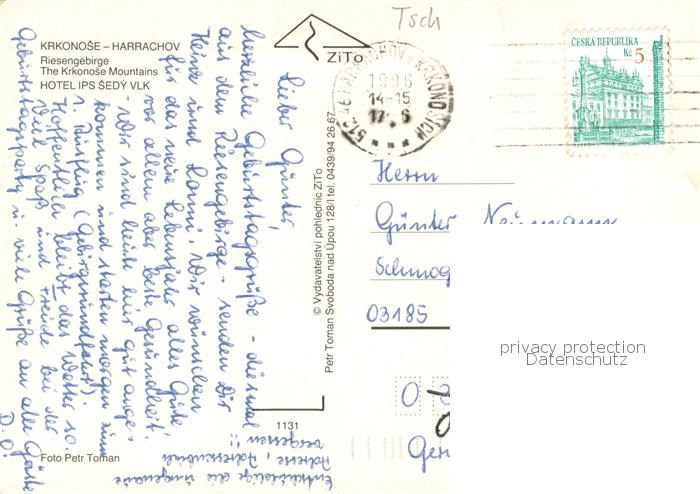 Tsch
KRKONOŠE – HARRACHOV
Riesengebirge
The Krkonoše Mountains
HOTEL IPS ŠEDÝ VLK
ZiTo
512 46 HARRACHOV V KRKONOŠÍCH
1996
14-15
17. 6
ČESKÁ REPUBLIKA
Kč 5
Lieber Günter,
herzliche Geburtstagsgrüße - diesmal
aus dem Riesengebirge - senden Dir
Heinz und Hanni. Wir wünschen
für das neue Lebensjahr alles Gute,
vor allem aber beste Gesundheit.
- Wir sind heute hier gut ange-
kommen und starten morgen zum
1. Ausflug (Gebirgsrundfahrt).
Hoffentlich bleibt das Wetter so.
Viel Spaß und Freude bei der
Geburtstagsparty u. viele Grüße an alle Gäste
D.O.
Entschuldige die ungenaue
Adresse, Adressenbüchl
vergessen !!
© Vydavatelství pohlednic ZiTo
Petr Toman Svoboda nad Úpou 128/I tel. 0439/94 26 67
Herrn
Günter Neumann
Schmog
03185
Ger
1131
Foto Petr Toman
privacy protection
Datenschutz